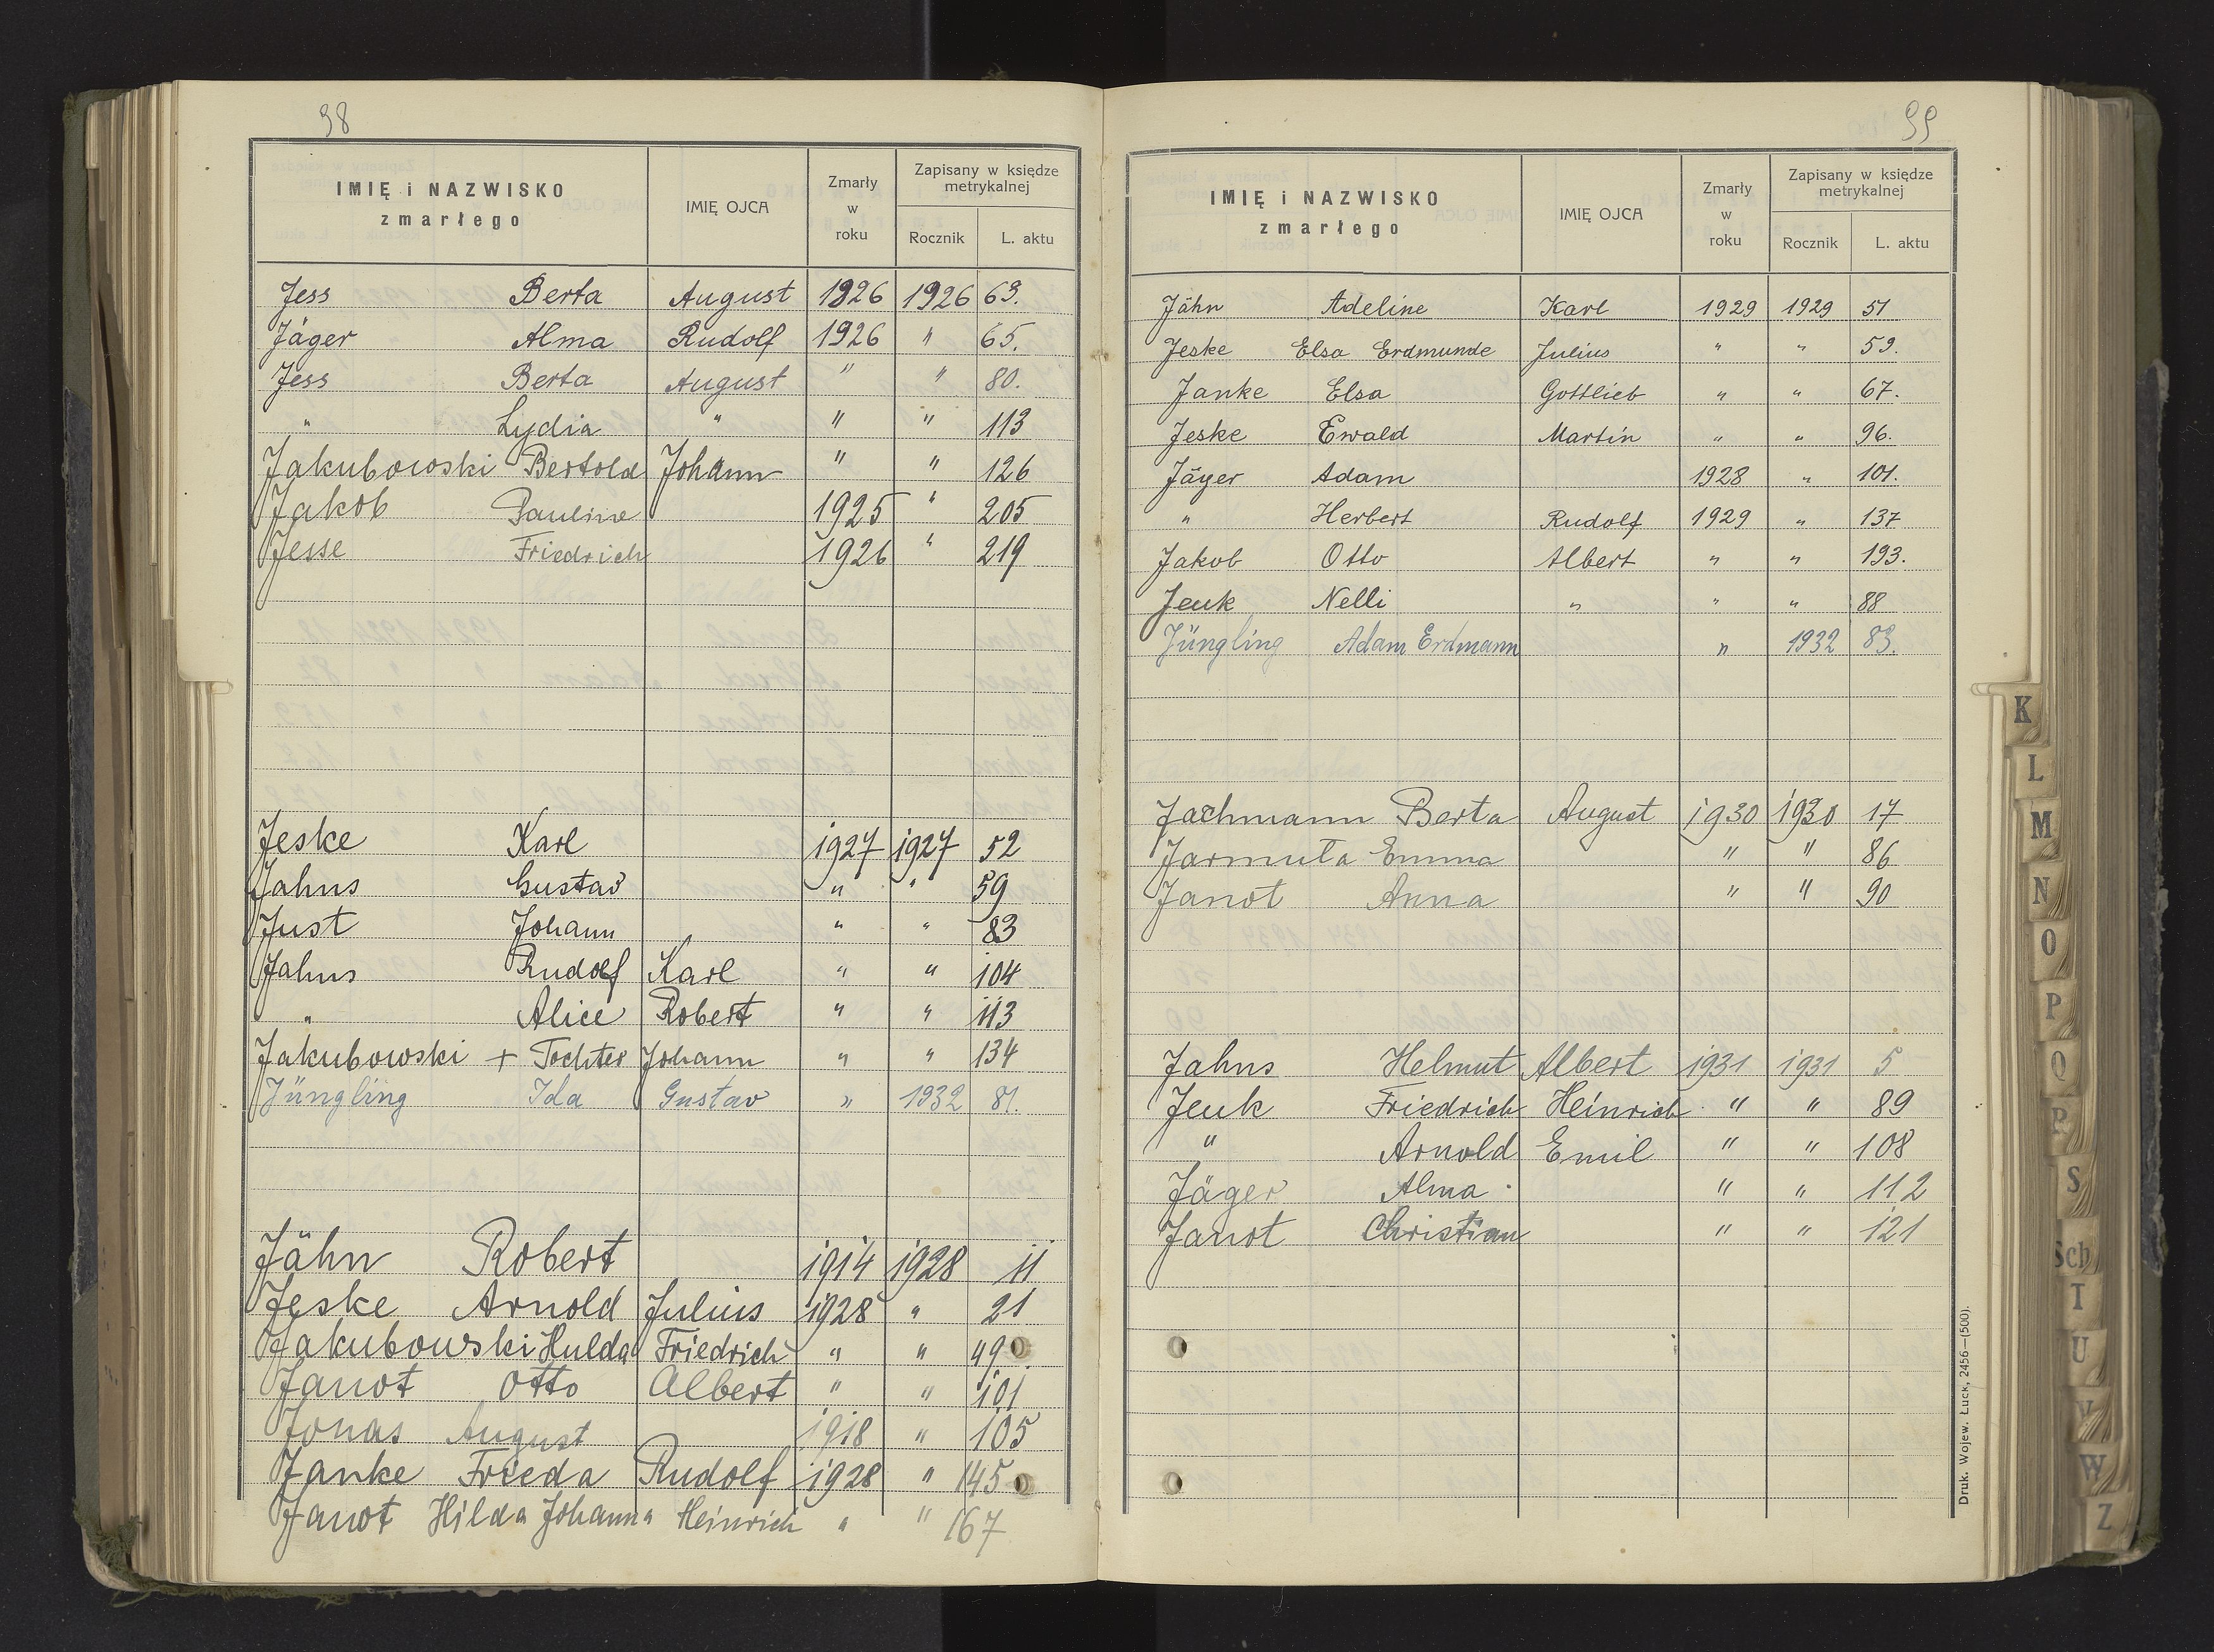 98
IMIĘ i NAZWISKO zmarłego IMIĘ OJCA Zmarły w roku Zapisany w księdze metrykalnej Rocznik L. aktu
Jess Berta August 1926 1926 63.
Jäger Alma Rudolf 1926 " 65.
Jess Berta August " " 80.
" Lydia " " " 113
Jakubowski Bertold Johann " " 126
Jakob Pauline 1925 " 205
Jesse Friedrich 1926 " 219
Jeske Karl 1927 1927 52
Jahns Gustav " " 59
Just Johann " " 83
Jahns Rudolf Karl " " 104
" Alice Robert " " 113
Jakubowski + Tochter Johann " " 134
Jüngling Ida Gustav " 1932 81.
Jähn Robert 1914 1928 11
Jeske Arnold Julius 1928 " 21
Jakubowski Hulda Friedrich " " 49
Janot Otto Albert " " 101
Jonas August 1918 " 105
Janke Frieda Rudolf 1928 " 145
Janot Hilda Johanna Heinrich " " 167
99
IMIĘ i NAZWISKO zmarłego IMIĘ OJCA Zmarły w roku Zapisany w księdze metrykalnej Rocznik L. aktu
Jähn Adeline Karl 1929 1929 51
Jeske Elsa Erdmunde Julius " " 59.
Janke Elsa Gottlieb " " 67.
Jeske Ewald Martin " " 96.
Jäger Adam 1928 " 101.
" Herbert Rudolf 1929 " 137
Jakob Otto Albert " " 193.
Jeuk Nelli " " " 88
Jüngling Adam Erdmann " 1932 83.
Jachmann Berta August 1930 1930 17
Jarmuta Emma " " 86
Janot Anna " " 90
Jahns Helmut Albert 1931 1931 5
Jeuk Friedrich Heinrich " " 89
" Arnold Emil " " 108
Jäger Alma " " 112
Janot Christian " " 121
Druk. Wojew. Łuck, 2456—(500).
K
L
M
N
O
P
Q
R
S
Sch
T
U
V
W
Z